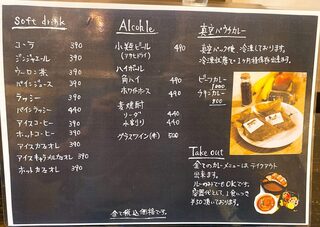 Soft drink
コーラ 390
ジンジャエール 390
ウーロン茶 390
パインジュース 390
ラッシー 390
パインラッシー 440
アイスコーヒー 390
ホットコーヒー 390
アイスカフェオレ 390
アイスキャラメルカフェオレ 390
ホットカフェオレ 390
Alcohle
小瓶ビール 490
(アサヒドライ)
ハイボール
角ハイ 490
ホワイトホース 490
麦焼酎
ソーダ 440
水割り 440
グラスワイン(赤) 500
全て税込価格です。
真空パックカレー
真空パック後、冷凍しております。
冷凍状態で1ヶ月程保存出来ます。
ビーフカレー
1000
チキンカレー
900
Take out
全てのカレーメニューはテイクアウト
出来ます。
ルーのみでもOKです。
容器代として、1食につき
¥50頂いております。